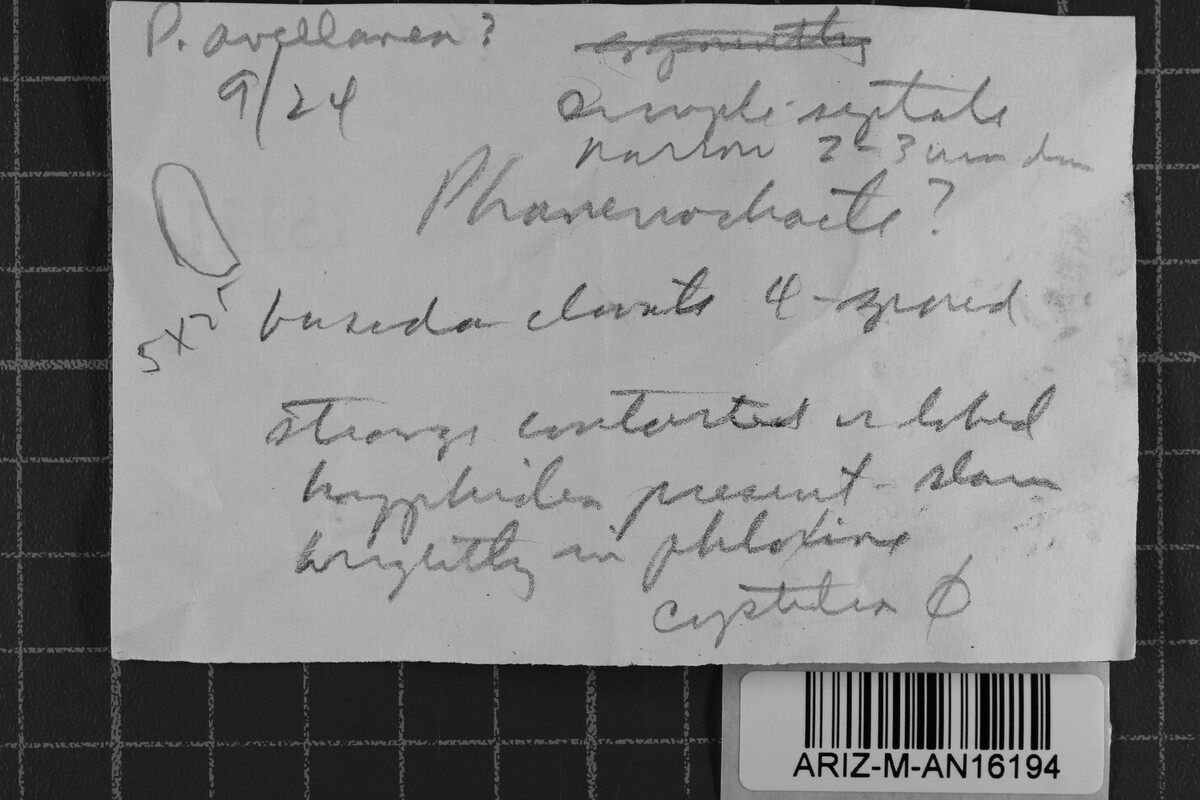 P. avellanea?
9/24
simple-septate
narrow 2-3 um diam
Phanerochaete?
5 x 2
basidia clavate 4-spored
strange contorted or lobed
hyphidia present - stain
brightly in phloxine
cystidia Ø
ARIZ-M-AN16194